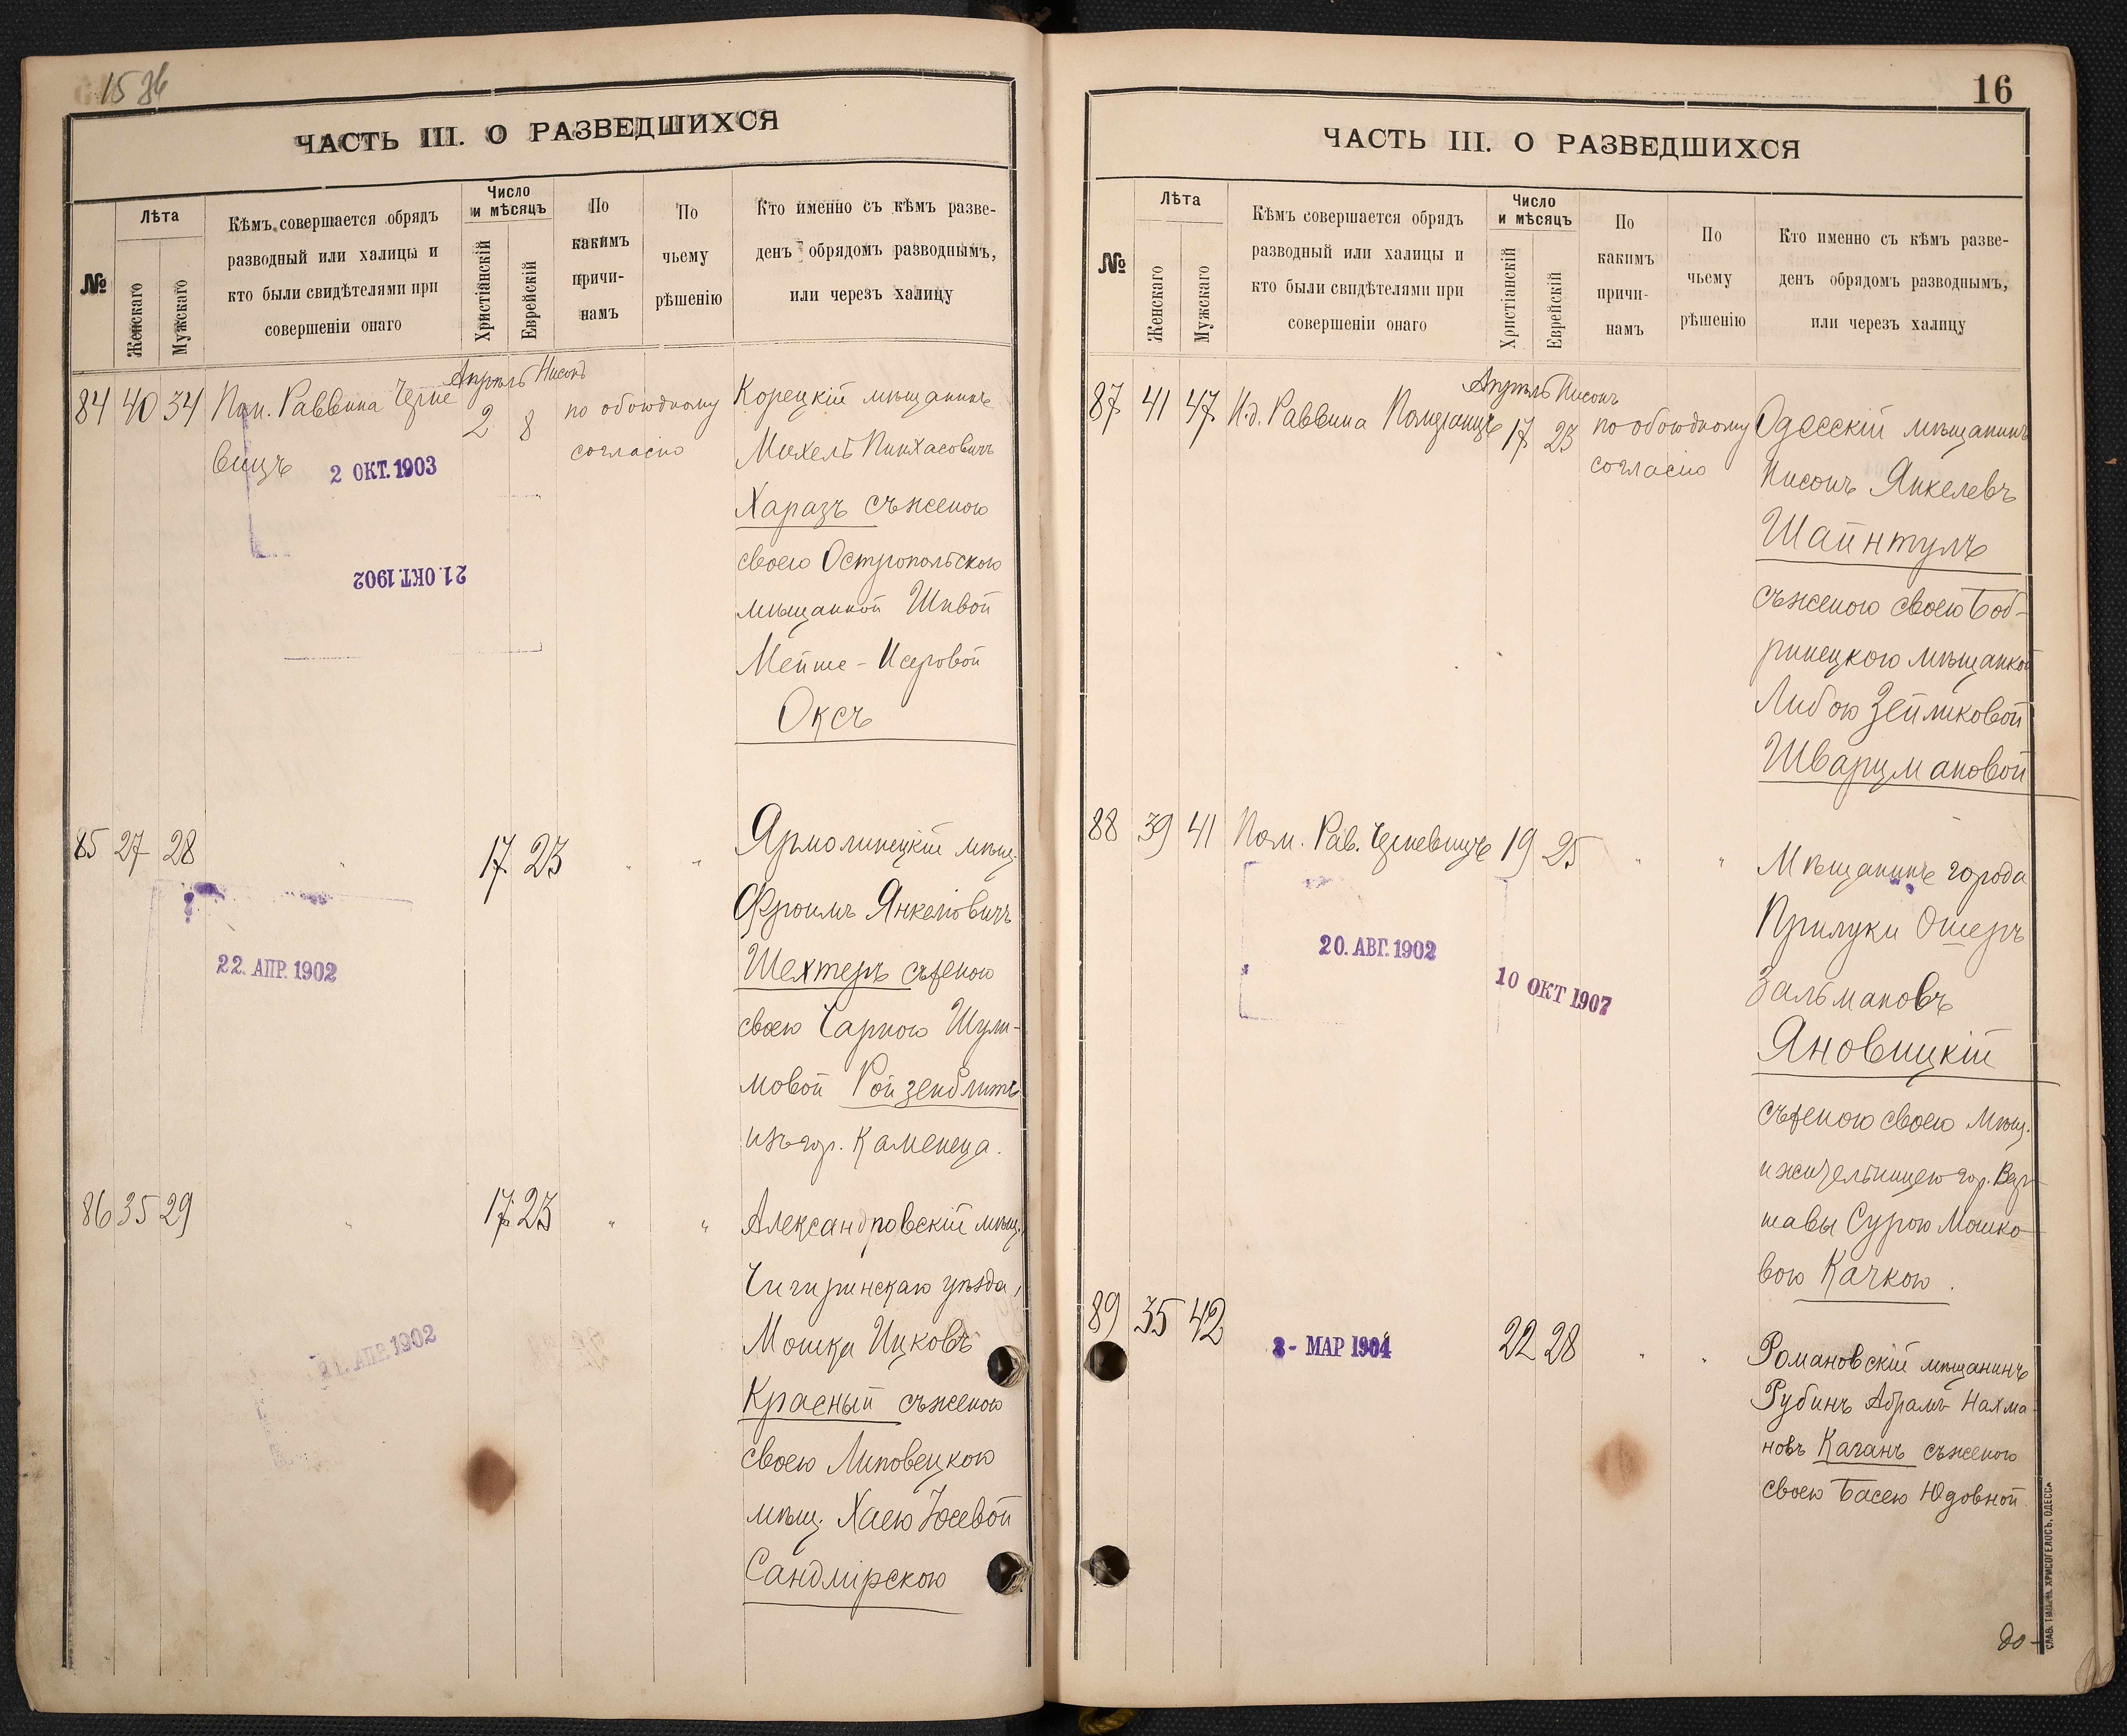 15 36
ЧАСТЬ III. О РАЗВЕДШИХСЯ
№
Лѣта
Женскаго
Мужскаго
Кѣмъ совершается обрядъ
разводный или халицы и
кто были свидѣтелями при
совершеніи онаго
Число
и мѣсяцъ
Христіанскій
Еврейскій
По
какимъ
причи-
намъ
По
чьему
рѣшенію
Кто именно съ кѣмъ разве-
денъ обрядомъ разводнымъ,
или черезъ халицу
84 40 34 Пом. Раввина Черне
вицъ
Апрѣль Нисонъ
2 8
по обоюдному
согласію
Корецкій мѣщанинъ
Михель Пинхасовичъ
Харазъ съ женою
своею Остропольскою
мѣщанкой Шивой
Мейше-Исеровой
Оксъ
2 ОКТ. 1903
21. ОКТ. 1902
85 27 28 " 17 23 " "
Ярмолинецкій мѣщ.
Фроимъ Янкеліовичъ
Шехтеръ съ женою
своею Чарною Шули-
мовой Ройзенблитъ
изъ гор. Каменеца.
22. АПР. 1902
86 35 29 " 17 23 " "
Александровскій мѣщ.
Чигиринскаго уѣзда,
Мошка Ицковъ
Красный съ женою
своею Липовецкою
мѣщ. Хаею Іосевой
Сандмірскою
21. АПР. 1902
16
ЧАСТЬ III. О РАЗВЕДШИХСЯ
№
Лѣта
Женскаго
Мужскаго
Кѣмъ совершается обрядъ
разводный или халицы и
кто были свидѣтелями при
совершеніи онаго
Число
и мѣсяцъ
Христіанскій
Еврейскій
По
какимъ
причи-
намъ
По
чьему
рѣшенію
Кто именно съ кѣмъ разве-
денъ обрядомъ разводнымъ,
или черезъ халицу
87 41 47 И.д. Раввина Померанцъ
Апрѣль Нисонъ
17 23
по обоюдному
согласію
Одесскій мѣщанинъ
Нисонъ Янкелевъ
Шайнтулъ
съ женою своею Боб-
ринецкою мѣщанкой
Либою Зейликовой
Шварцмановой
88 39 41 Пом. Рав. Черневицъ 19 25 " "
Мѣщанинъ города
Прилуки Ошеръ
Зальмановъ
Яновицкій
съ женою своею мѣщ.
и жительницею гор. Вар-
шавы Сурою Мошко-
вою Качкою.
20. АВГ. 1902
10 ОКТ 1907
89 35 42 22 28 " "
Романовскій мѣщанинъ
Рубинъ Абрамъ Нахма-
новъ Каганъ съ женою
своею Басею Юдовной
- МАР 1904
до-
СЛАВ. ТИП. Н. ХРИСОГЕЛОСЪ, ОДЕССА